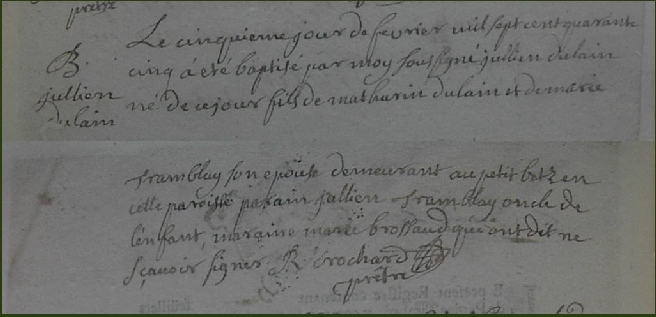 prêtre
Le cinquieme jour de fevrier mil sept cent quarante
B.
cinq a été baptisé par moy soussigné jullien dulain
jullien
né de ce jour fils de mathurin dulain et de marie
dulain
tramblay son epouse demeurant au petit betz en
cette paroisse parain jullien tramblay oncle de
l'enfant, maraine marie brossaud qui ont dit ne
sçavoir signer. R brochard
prêtre